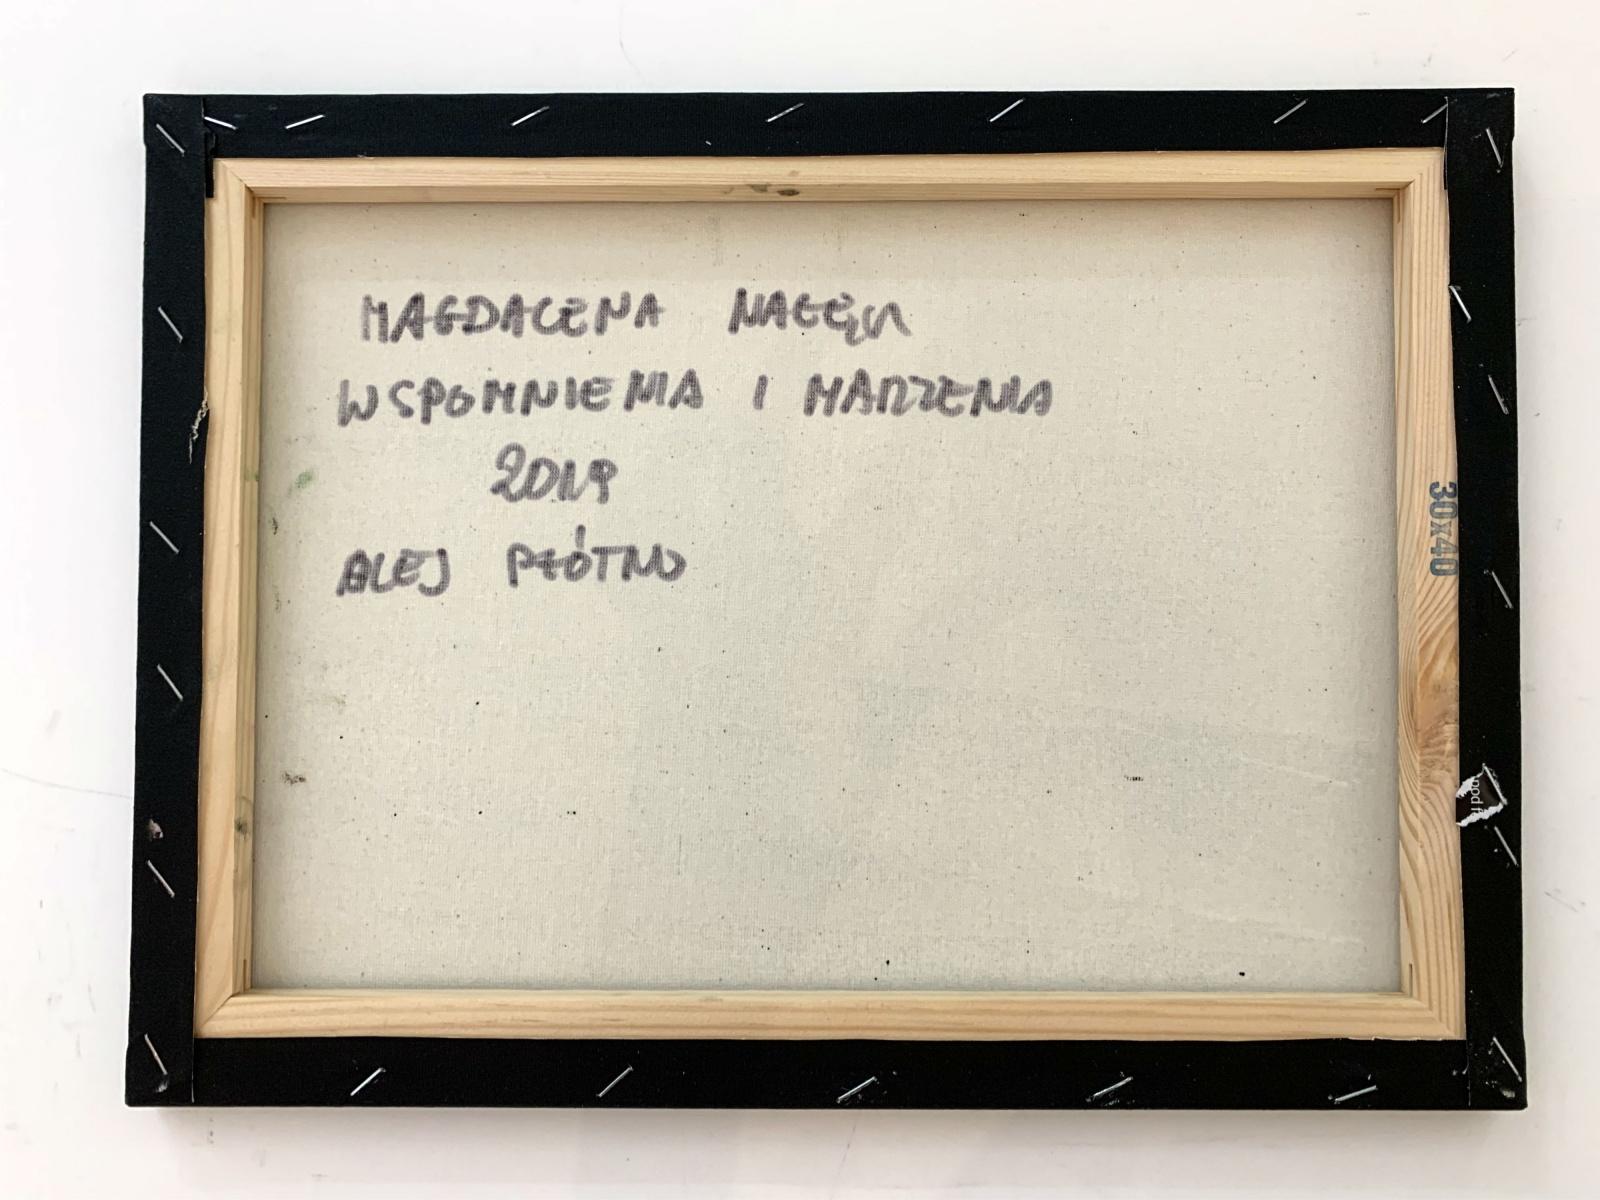 MAGDALENA NAŁĘCZ
WSPOMNIENIA I MARZENIA
2019
OLEJ PŁÓTNO
30x40